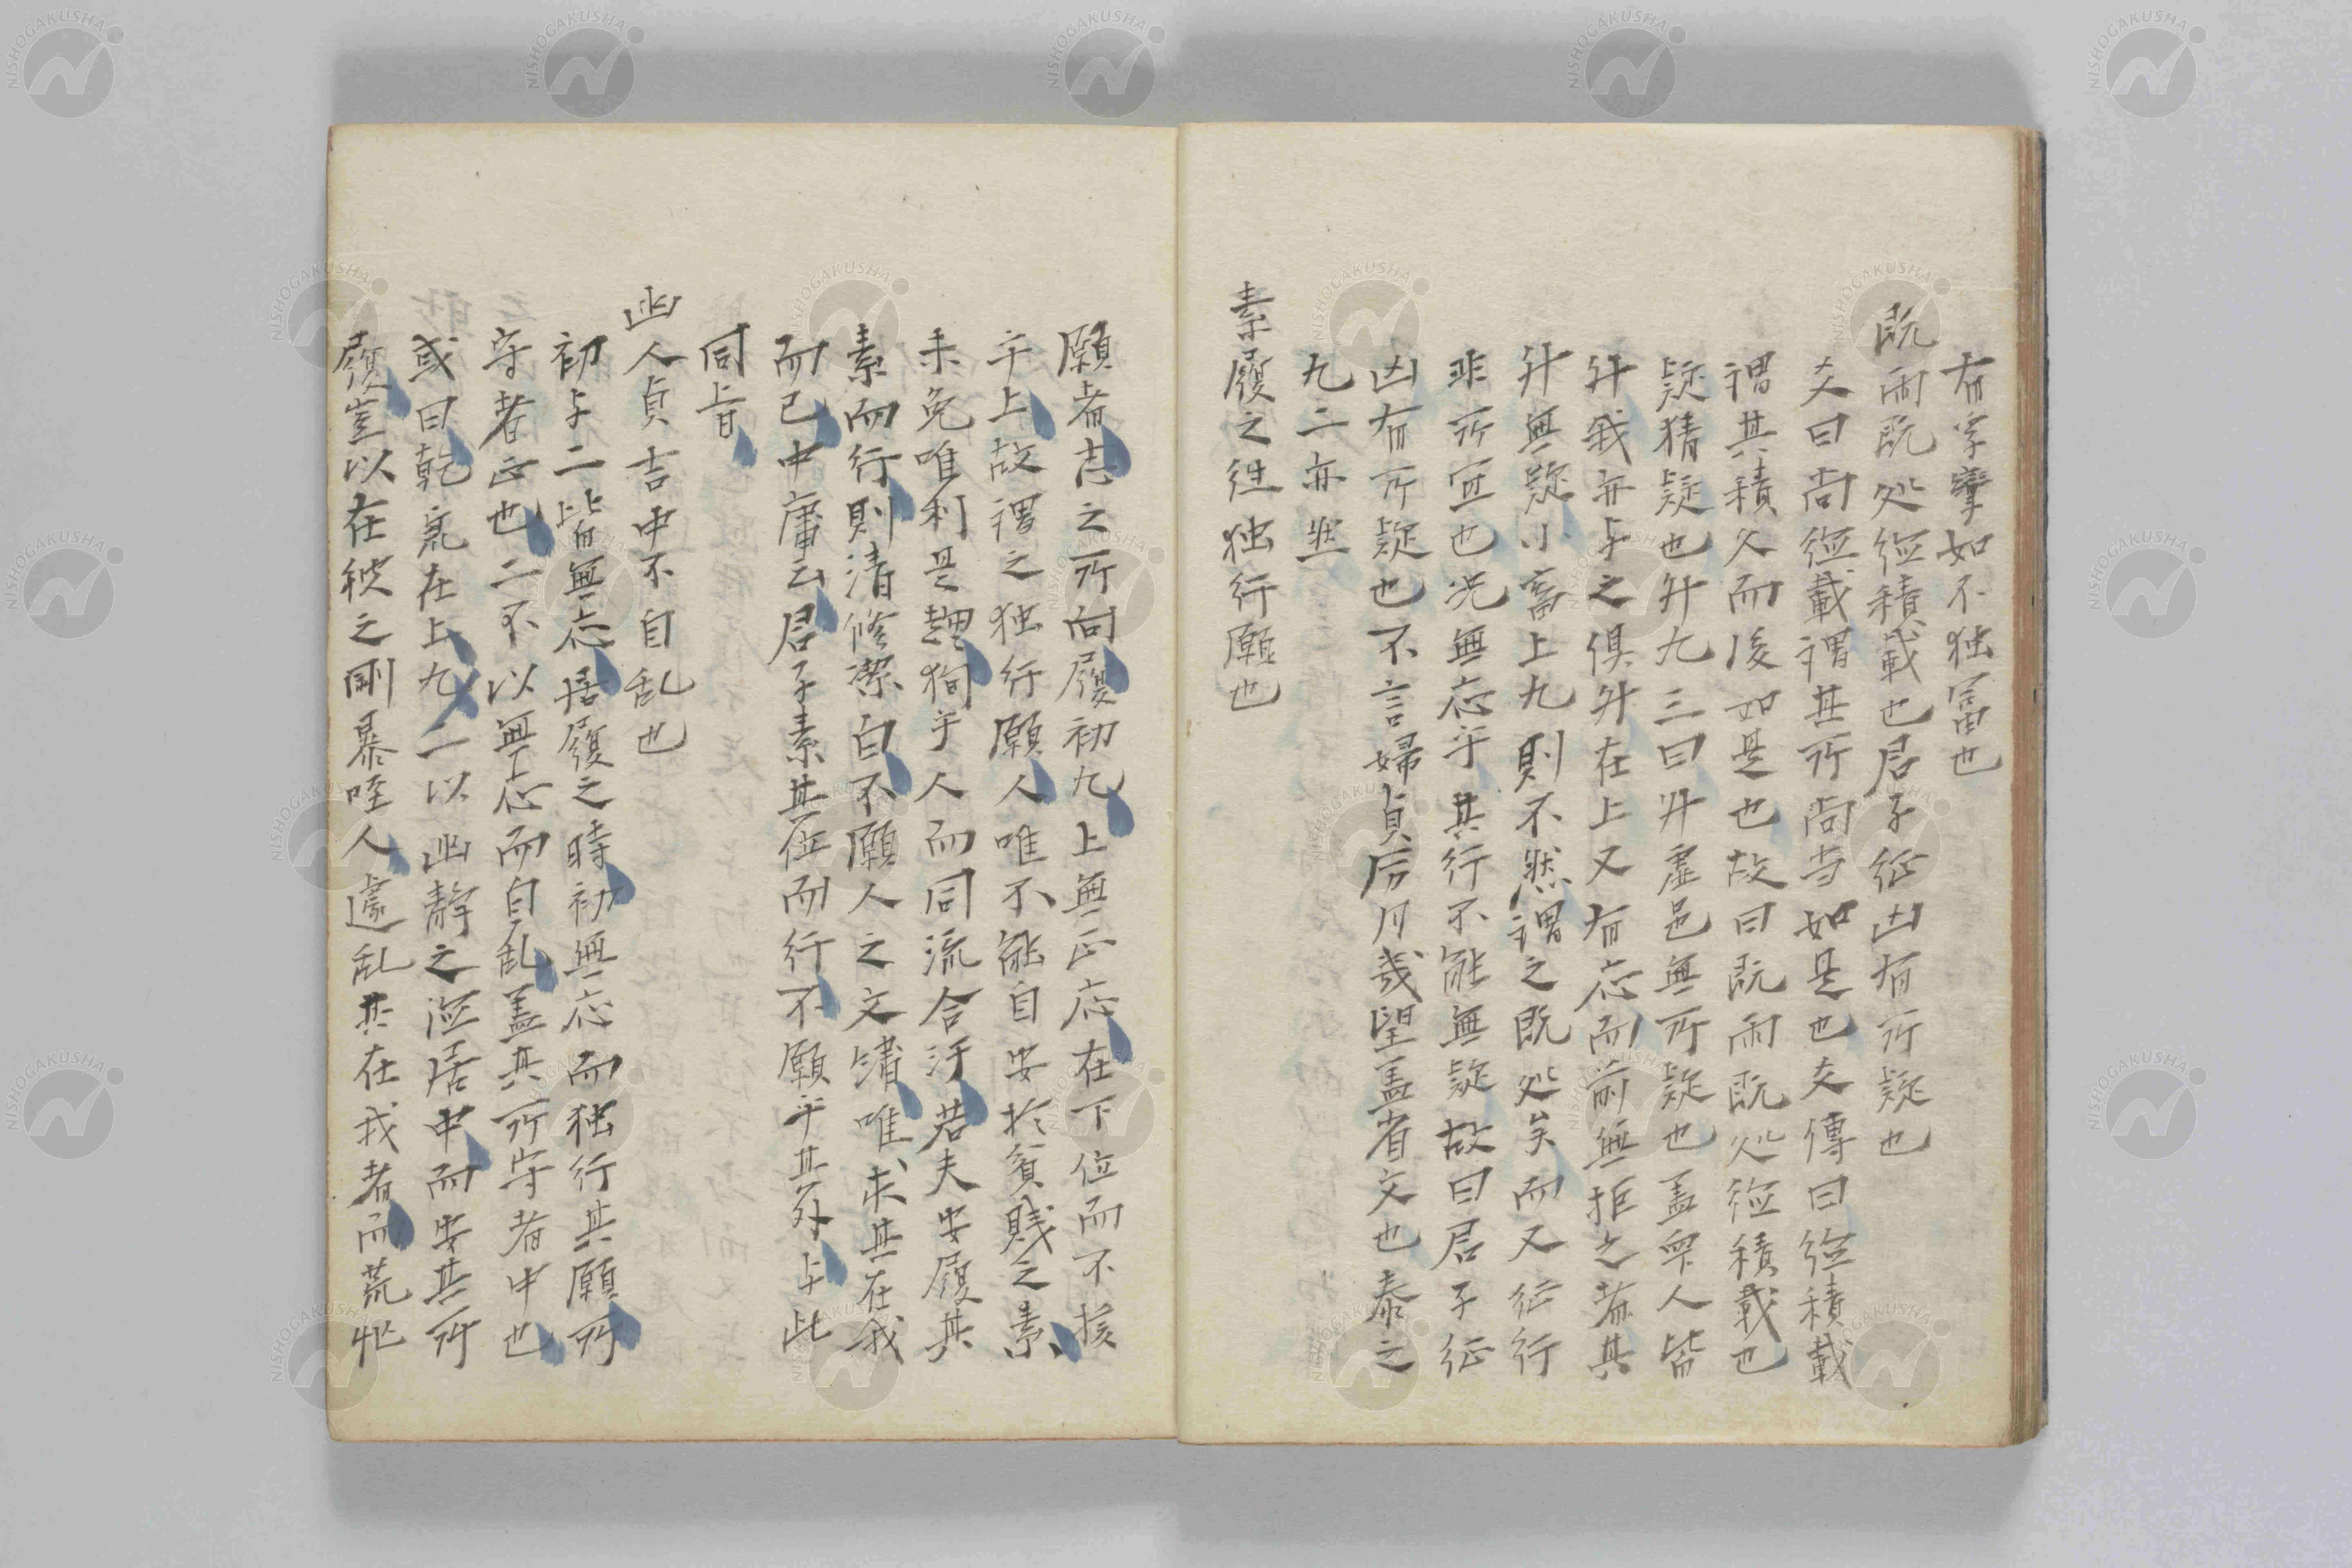 有孚攣如不独富也
既雨既処徳積載也君子征凶有所疑也
爻曰尚徳載謂其所尚者如是也爻傳曰徳積載
謂其積久而後如是也故曰既雨既処徳積載也
疑猜疑也升九三曰升虚邑無所疑也盖衆人皆
升我亦与之倶升在上又有応而前無拒之者其
升無疑小畜上九則不然謂之既処矣而又征行
非所宜也况無応乎其行不能無疑故曰君子征
凶有所疑也不言婦貞厉月幾望盖省文也泰之
九二亦然
素履之徃独行願也
願者志之所向履初九上無正応在下位而不援
乎上故謂之独行願人唯不能自安於貧賤之素
未免唯利是趨狥乎人而同流合汙若夫安履其
素而行則清修潔白不願人之文繡唯求其在我
而已中庸云君子素其位而行不願乎其外与此
同旨
幽人貞吉中不自乱也
初与二皆無応居履之時初無応而独行其願所
守者正也二不以無応而自乱盖其所守者中也
或曰乾兌在上九二以幽静之徳居中而安其所
履豈以在彼之剛暴咥人遽乱其在我者而荒忙